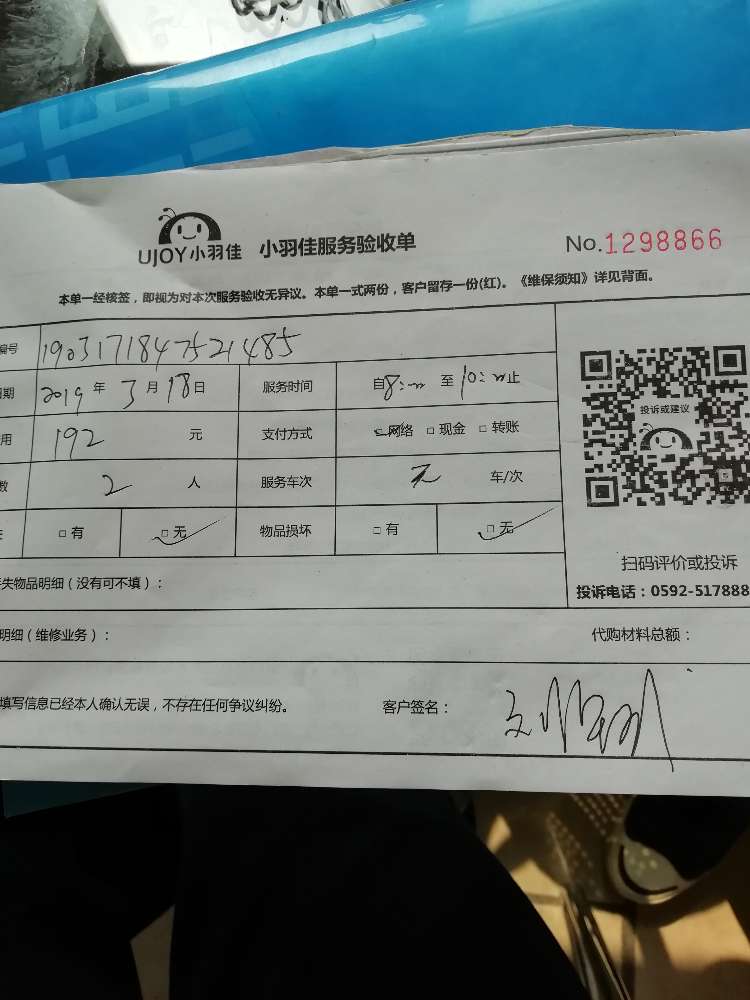 UJOY小羽佳 小羽佳服务验收单 No.1298866
本单一经核签，即视为对本次服务验收无异议。本单一式两份，客户留存一份(红)。《维保须知》详见背面。
编号 190317184752 1485
期 2019 年 3 月 18 日 服务时间 自8:00 至 10:00止
用 192 元 支付方式 □网络 □现金 □转账
数 2 人 服务车次 无 车/次
□有 □无 物品损坏 □有 □无
投诉或建议
扫码评价或投诉
投诉电话：0592-517888
失物品明细（没有可不填）：
明细（维修业务）： 代购材料总额：
填写信息已经本人确认无误，不存在任何争议纠纷。 客户签名：